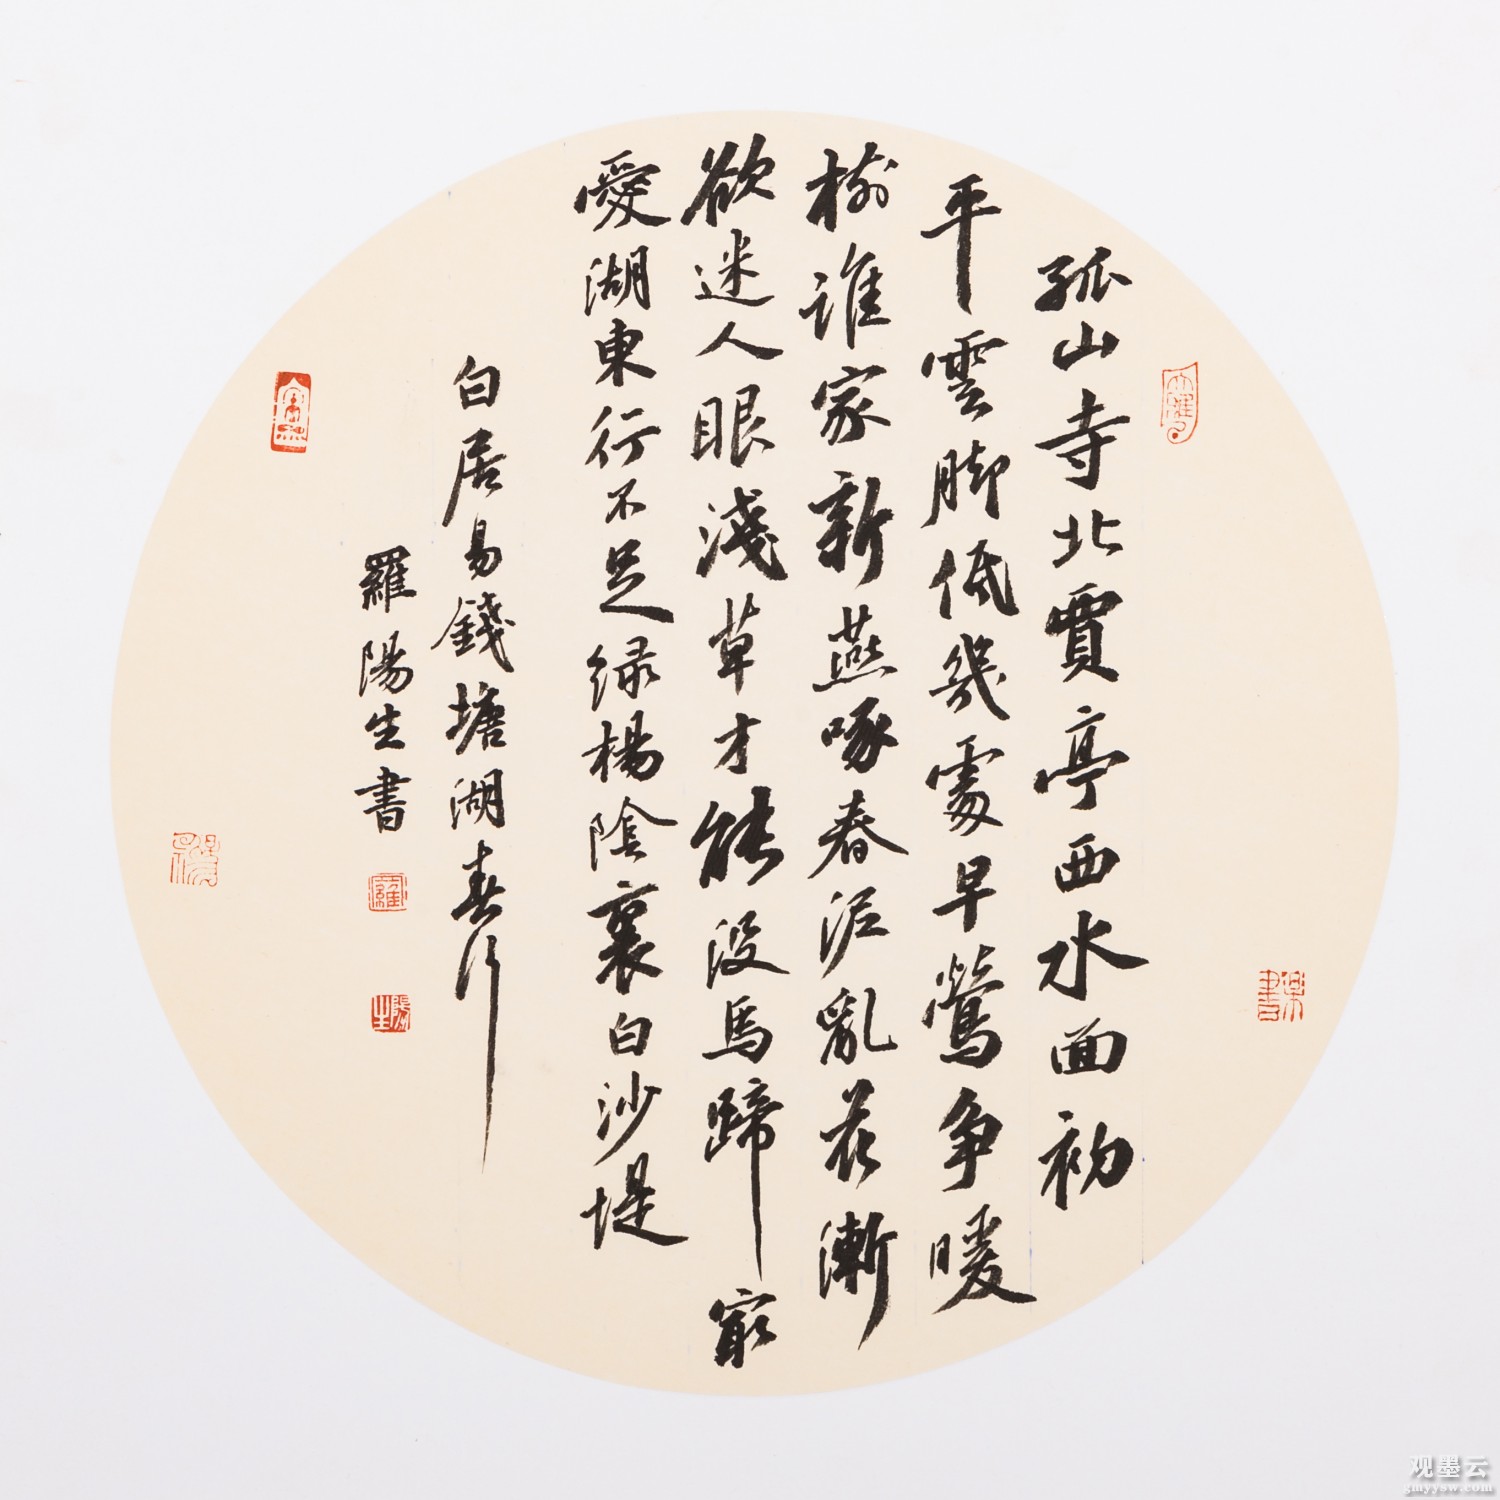 孤山寺北賈亭西水面初
平雲脚低幾處早鶯争暖
樹誰家新燕啄春泥亂花漸
欲迷人眼淺草才能没馬蹄宷
愛湖東行不足绿楊陰裏白沙堤
白居易錢塘湖春行
羅陽生書
羅
陽生
觀墨云
gmyysw.com